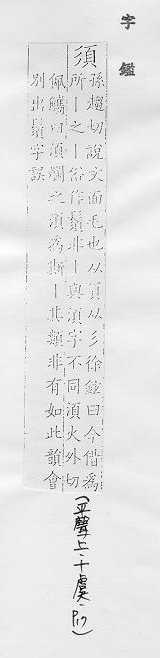 字鑑
須
孫趨切說文面毛也从頁从彡徐鉉曰今借爲
所丨之丨俗作鬚非丨與湏字不同湏火外切
佩觿曰湏爛之湏爲斯丨其類非有如此韻會
別出鬚字誤
(平聲上·十虞·P17)